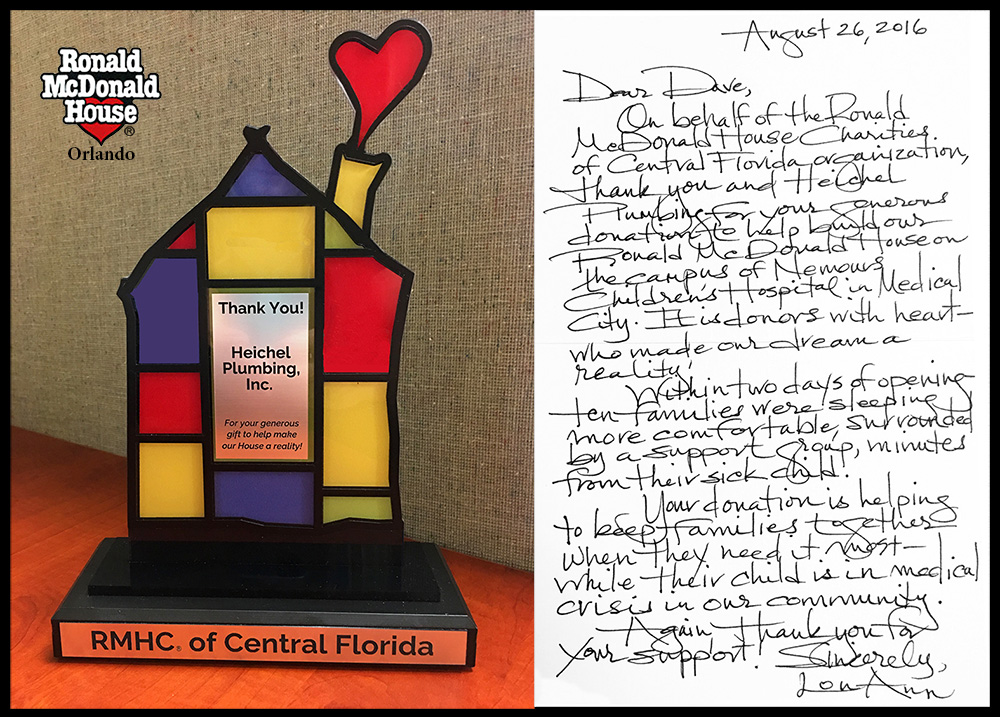 Ronald
McDonald
House®
Orlando
Thank You!
Heichel
Plumbing,
Inc.
For your generous
gift to help make
our House a reality!
RMHC® of Central Florida
August 26, 2016
Dear Dave,
On behalf of the Ronald
McDonald House Charities
of Central Florida organization,
thank you and Heichel
Plumbing for your generous
donation to help build our
Ronald McDonald House on
the campus of Nemours
Children's Hospital in Medical
City. It is donors with heart
who made our dream a
reality!
Within two days of opening
ten families were sleeping
more comfortable, surrounded
by a support group, minutes
from their sick child.
Your donation is helping
to keep families together
when they need it most—
while their child is in medical
crisis in our community.
Again, thank you for
your support! Sincerely,
Lou Ann